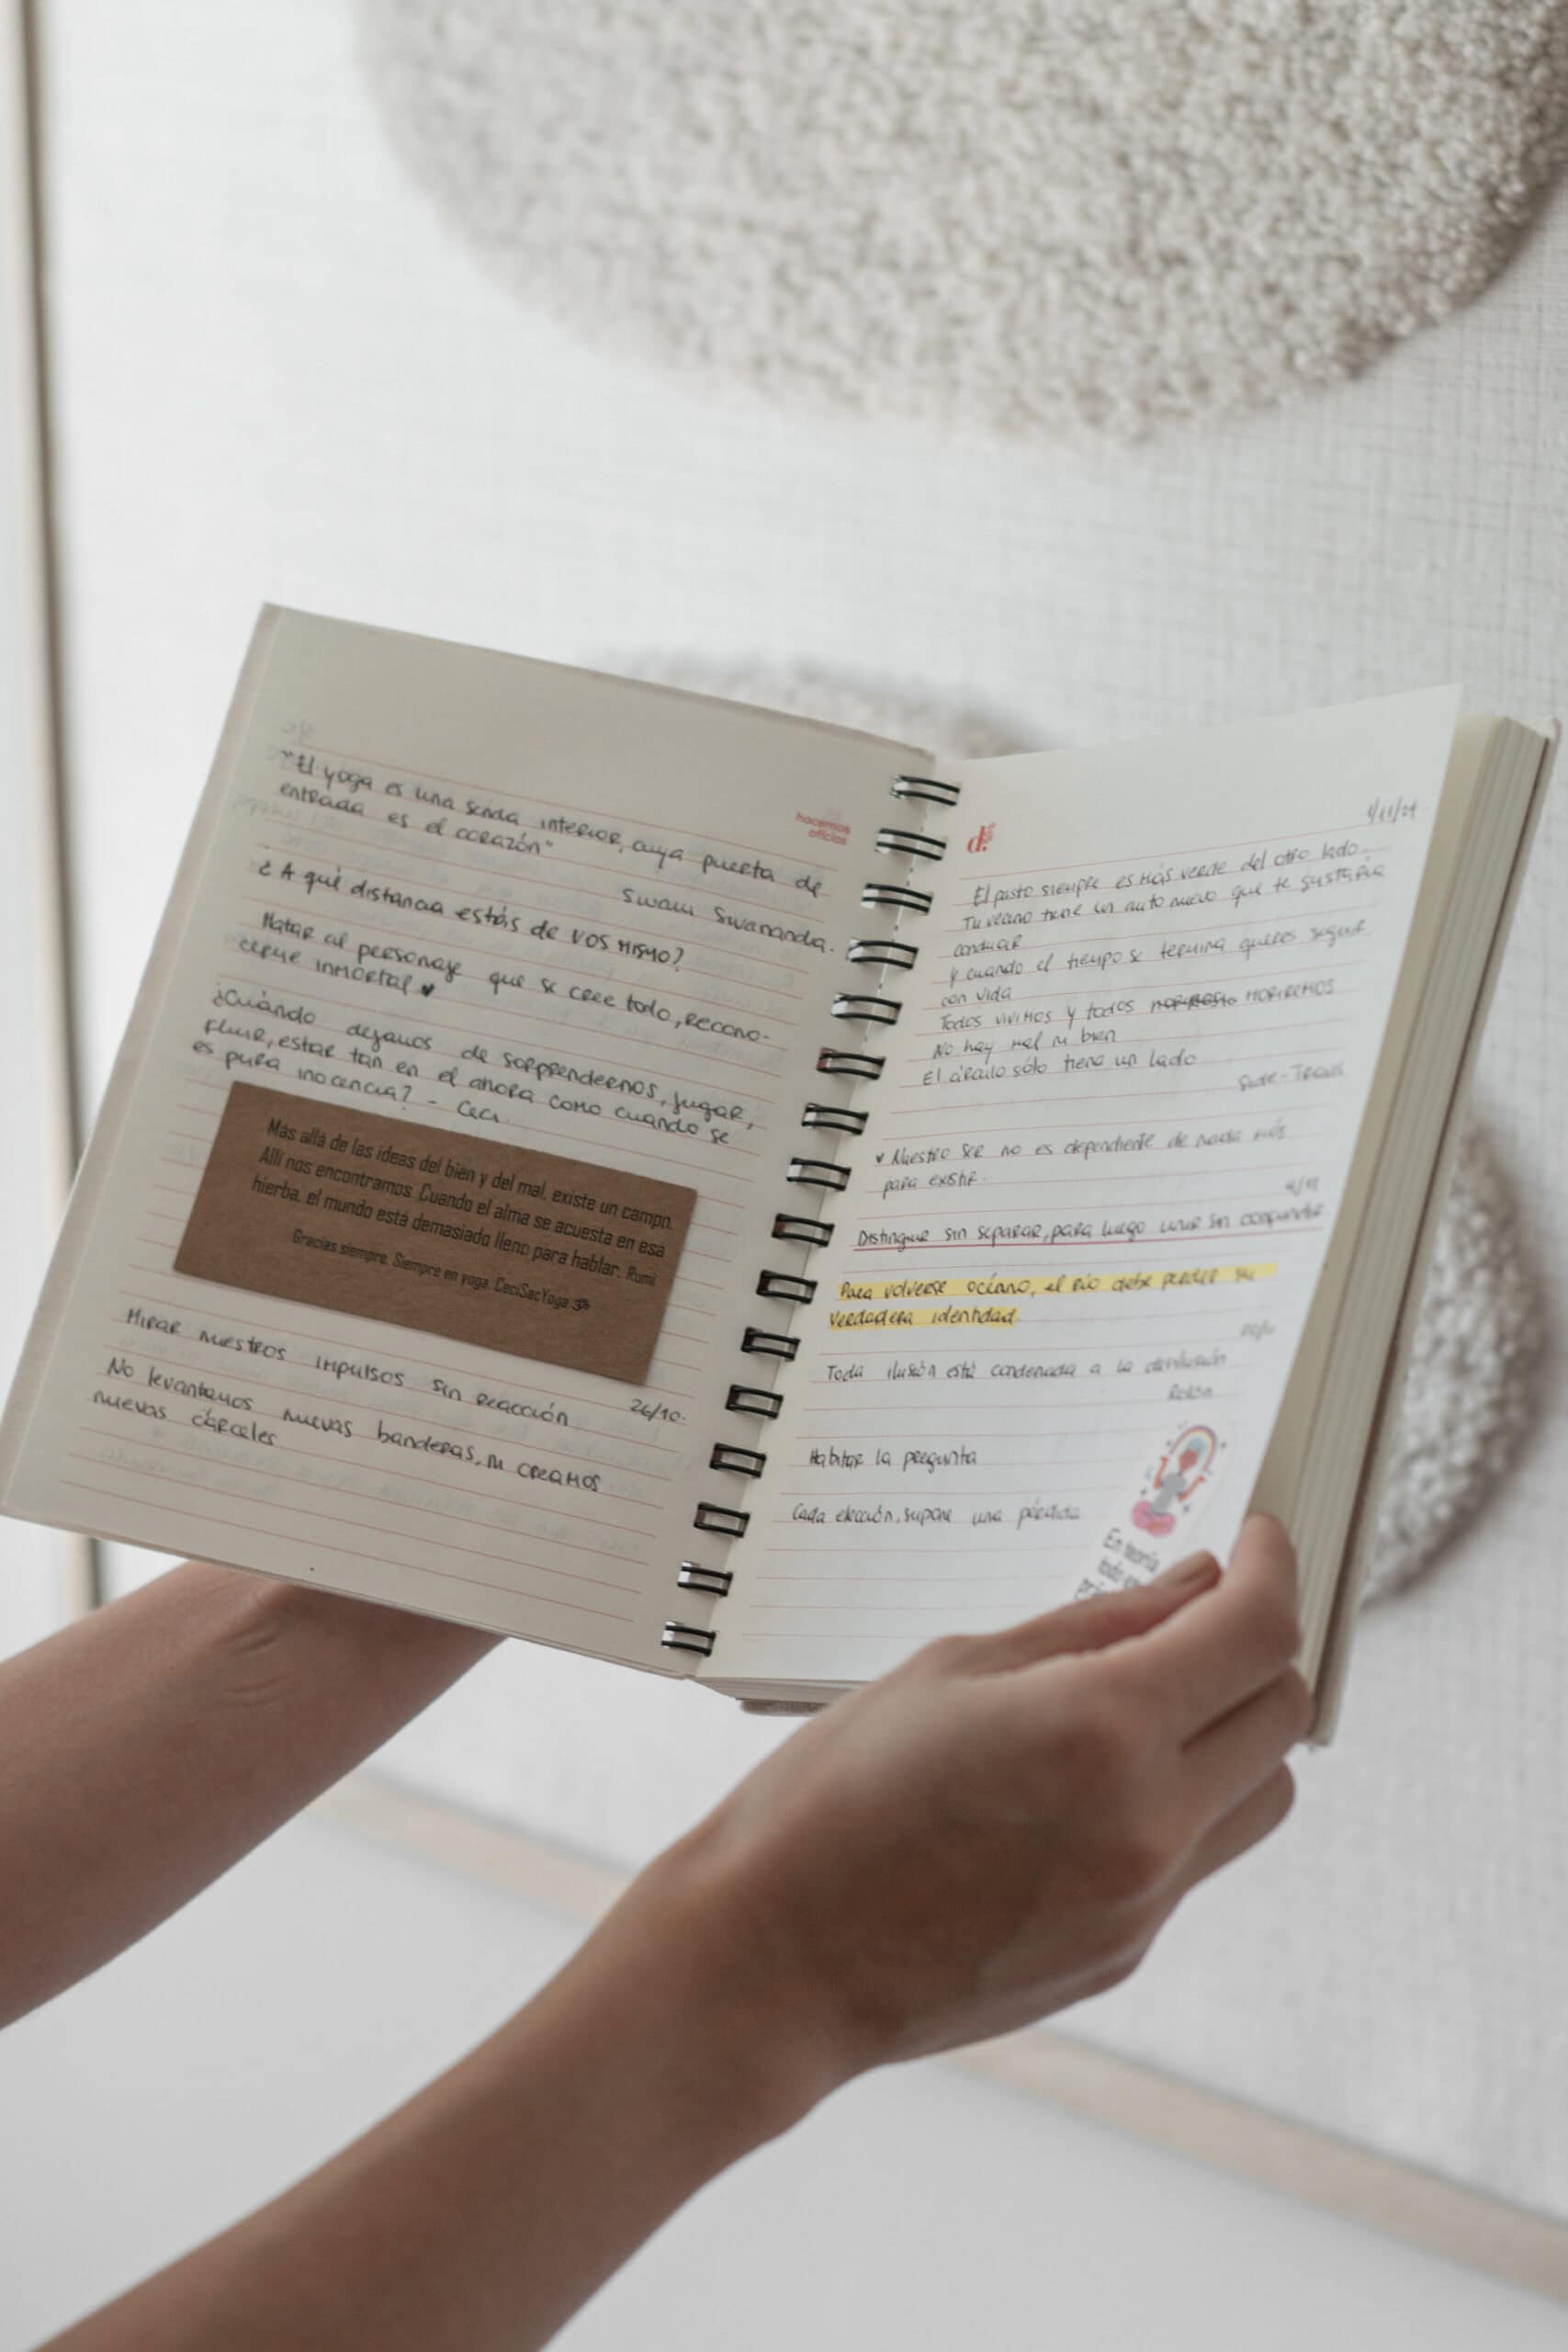 "El yoga es una senda interior, cuya puerta de
entrada es el corazón"
Swami Swananda.
¿A qué distancia estáis de vos mismo?
Matar al personaje que se cree todo, recono-
cerme inmortal ♥
¿Cuándo dejamos de sorprendernos, jugar,
fluir, estar tan en el ahora como cuando se
es pura inocencia? - Ceci.
Más allá de las ideas del bien y del mal, existe un campo.
Allí nos encontramos. Cuando el alma se acuesta en esa
hierba, el mundo está demasiado lleno para hablar. Rumi
Gracias siempre. Siempre en yoga. CeciSacYoga
26/10.
Mirar nuestros impulsos sin reacción
No levantamos nuevas banderas, ni creamos
nuevas cárceles
hacemos
oficios
d!
El pasto siempre es más verde del otro lado
Tu vecino tiene un auto nuevo que te gustaría
conducir
y cuando el tiempo se termina quieres seguir
con vida
Todos vivimos y todos moriremos
No hay mal ni bien
El círculo sólo tiene un lado
♥ Nuestro ser no es dependiente de nada más
para existir.
Distingue sin separar, para luego unir sin confundir
Para volverse océano, el río debe perder su
verdadera identidad.
Toda ilusión está condenada a la desilusión
Rolón
Habitar la pregunta
Cada elección, supone una pérdida
En teoría
todo